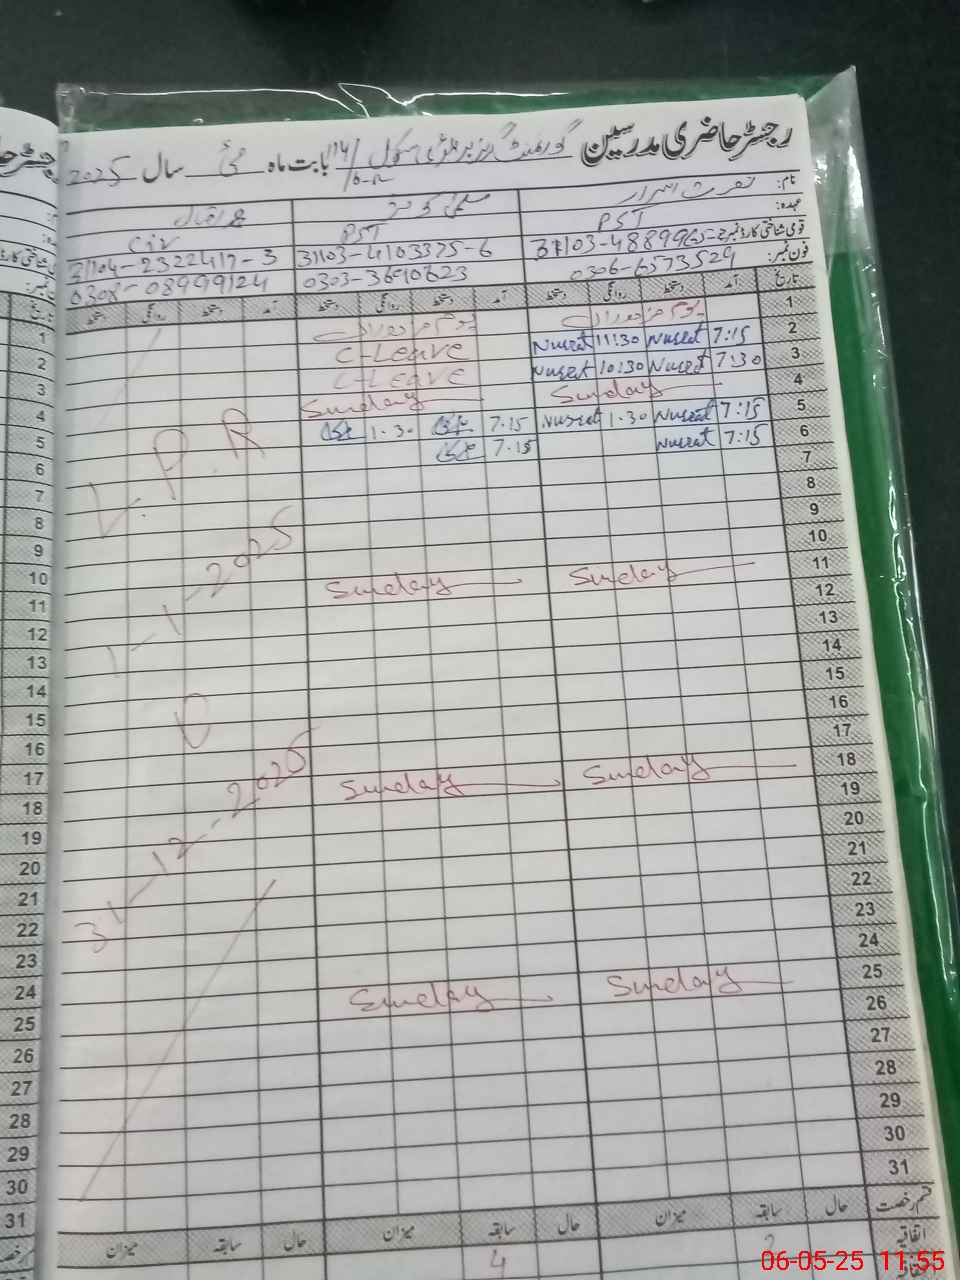 رجسٹر حاضری مدرسین گورنمنٹ گرلز پرائمری سکول 114/ بابت ماہ مئی سال 2025
نام: نصرت اسرار
عہدہ: PST PST Civ
قومی شناختی کارڈ نمبر 31103-4889965-2 31103-4103375-6 31104-2322417-3
فون نمبر: 0306-6573529 0303-3690623 0308-08999124
تاریخ آمد دستخط روانگی دستخط آمد دستخط روانگی دستخط آمد دستخط روانگی دستخط
1 یوم مزدوراں یوم مزدوراں 1
2 7:15 Nusrat 11:30 Nusrat C-Leave 2
3 7:30 Nusrat 10:30 Nusrat C-Leave 3
4 Sunday Sunday 4
5 7:15 Nusrat 1.30 Nusrat 7.15 1.30 5
6 7:15 Nusrat 7.15 6
L.P.R
7 7
8 8
9 9
10 10
1-1-2025
11 Sunday Sunday 11
12 12
13 13
14 14
15 15
16 16
17 17
31-12-2025
18 Sunday Sunday 18
19 19
20 20
21 21
22 22
23 23
24 24
25 Sunday Sunday 25
26 26
27 27
28 28
29 29
30 30
31 31
قسم رخصت حال سابقہ میزان حال سابقہ میزان حال سابقہ میزان
اتفاقیہ 2 4
06-05-25 11:55